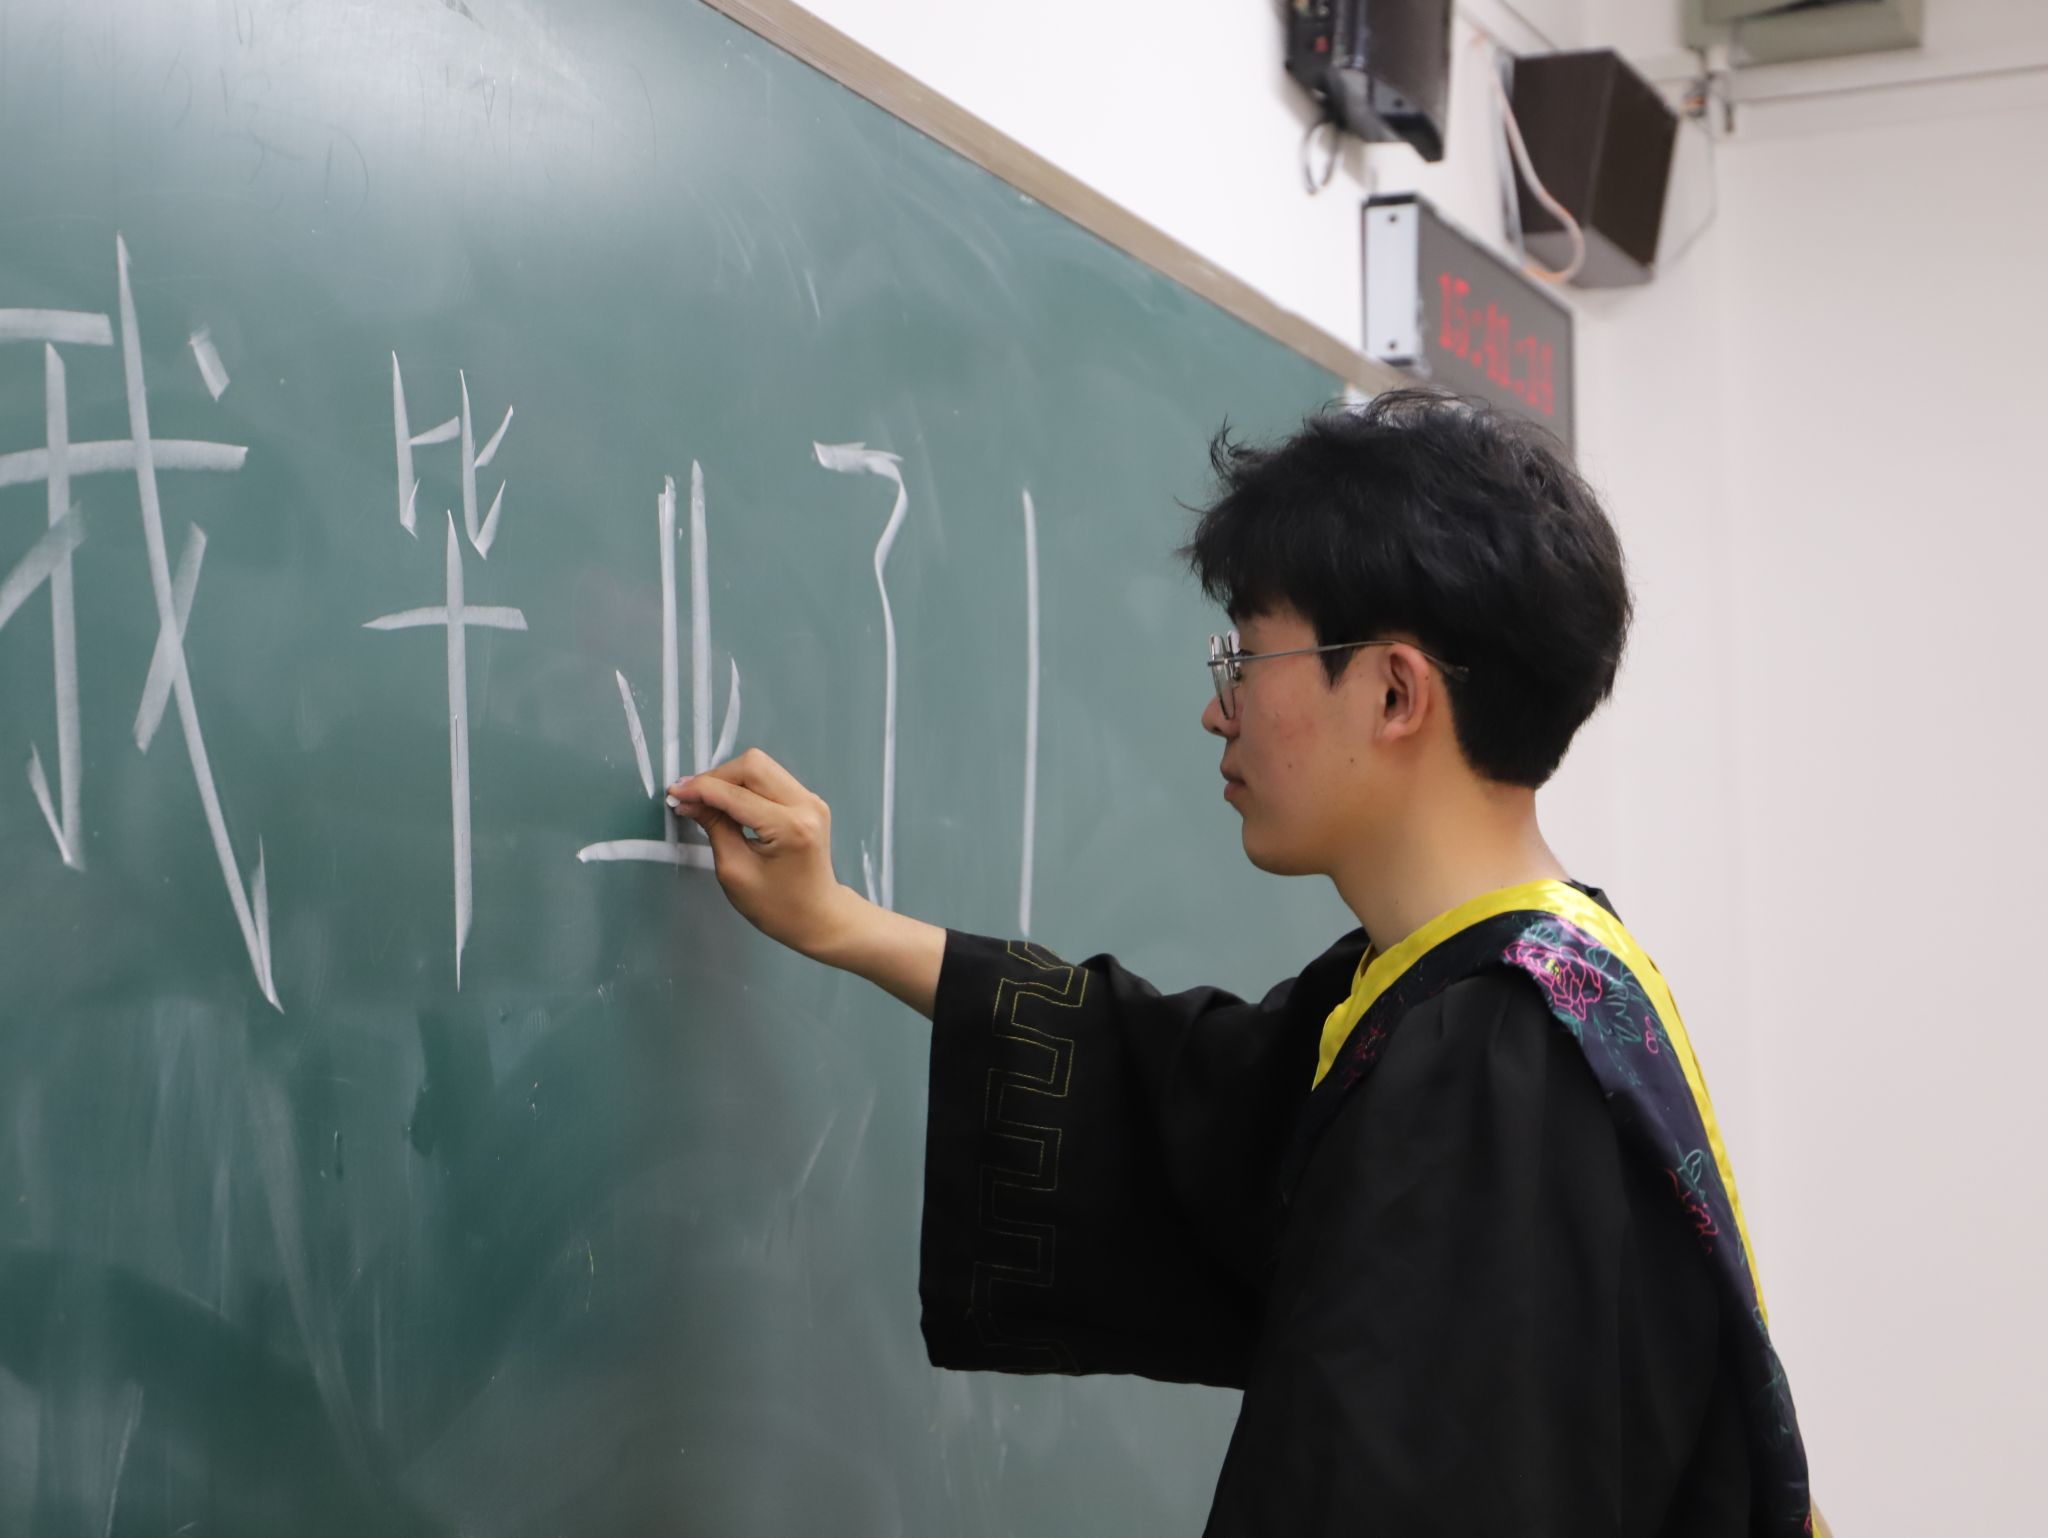 我毕业了
15:41:14